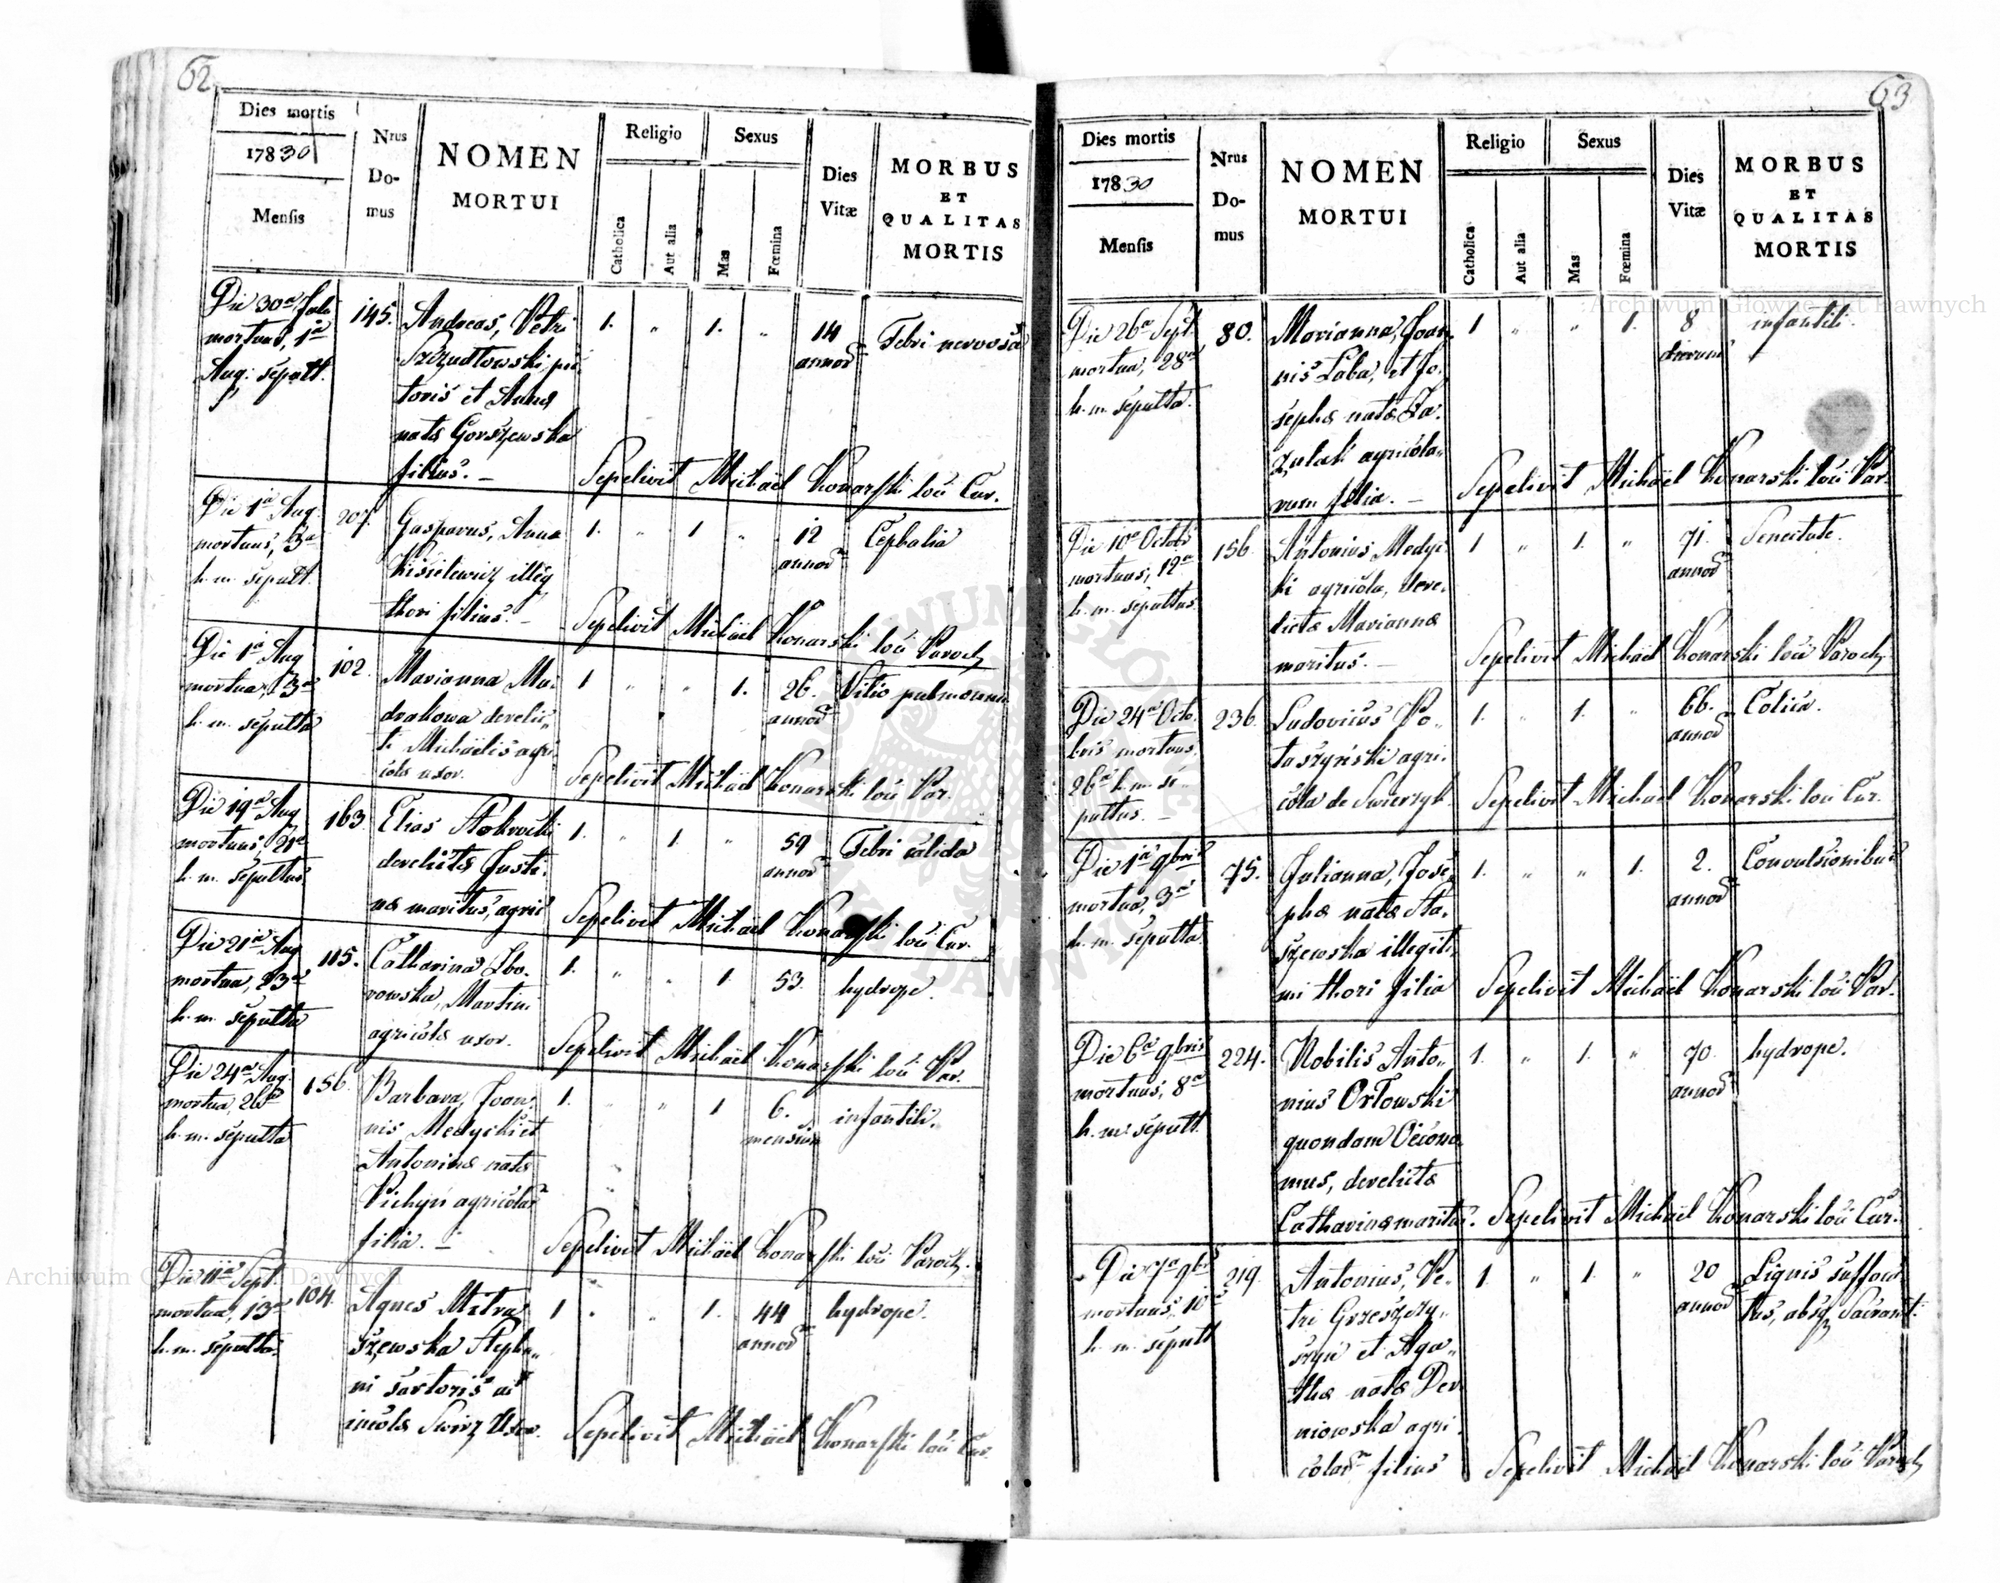 62
Dies mortis
1830
Mensis
Nrus
Do-
mus
NOMEN
MORTUI
Religio
Catholica
Aut alia
Sexus
Mas
Fœmina
Dies
Vitæ
MORBUS
ET
QUALITAS
MORTIS
Die 30a Julii
mortuus, 1a
Aug: sepult.
145.
Andreas, Petri
Szczudłowski, pis
toris et Annæ
natæ Gorszewska
filius. –
1. „ 1. „
14
annor
Febri nervosa
Sepelivit Michaël Konarski loci Cur.
Die 1a Aug:
mortuus, 3a
h. m. sepult.
207.
Gasparus, Annæ
Kisielewicz illeg
thori filius. –
1. „ 1 „
12
annor
Cephalia
Sepelivit Michaël Konarski loci Paroch
Die 1a Aug
mortua, 3a
h. m. sepulta
102.
Marianna Mu-
drakowa derelic„
ti Michaëlis agri
colæ uxor.
1 „ „ 1.
26.
annor
Vitio pulmonum
Sepelivit Michaël Konarski loci Par.
Die 19a Aug
mortuus, 21a
h. m. sepultus.
163
Elias Mokrocki
derelicta Justi-
næ maritus, agric
1. „ 1. „
59
annor
Febri calida
Sepelivit Michaël Konarski loci Cur.
Die 21a Aug
mortua, 23a
h. m. sepulta
115.
Catharina Zbo-
rowska, Martini
agricolæ uxor.
1. „ „ 1.
53.
hydrope.
Sepelivit Michaël Konarski loci Par.
Die 24a Aug:
mortua, 26a
h. m. sepulta
156.
Barbara, Joan-
nis Medycki et
Antoninæ natæ
Pichyń agricolar
filia. –
1. „ „ 1
6.
mensium
infantili.
Sepelivit Michaël Konarski loci Paroch.
Die 11a Sept.
mortua, 13a
h. m. sepulta.
104.
Agnes Mitra
szewska Stepha„
ni sartoris ac
incolæ Swirz Uxor.
1 „ „ 1.
44
annor
hydrope.
Sepelivit Michaël Konarski loci Cur.
63
Dies mortis
1830
Mensis
Nrus
Do-
mus
NOMEN
MORTUI
Religio
Catholica
Aut alia
Sexus
Mas
Fœmina
Dies
Vitæ
MORBUS
ET
QUALITAS
MORTIS
Die 26a Sept.
mortua, 28a
h. m. sepulta.
80.
Marianna, Joan-
nis Łaba, et Jo-
sephæ natæ Za-
zulak agricola„
rum filia. –
1 „ „ 1.
8
dierum
infantili.
Sepelivit Michaël Konarski loci Par.
Die 10a Octobris
mortuus, 12a
h. m. sepultus.
156.
Antonius Medyc-
ki agricola, dere-
lictæ Mariannæ
maritus. –
1 „ 1. „
71.
annor
Senectute.
Sepelivit Michaël Konarski loci Paroch
Die 24a Octo-
bris mortuus,
26a h. m. se-
pultus. –
236.
Ludovicus Po„
taszyński agri-
cola de Swierzyk.
1. „ 1. „
66.
annor
Colica.
Sepelivit Michael Konarski loci Cur.
Die 1a 9bris
mortua, 3a
h. m. sepulta
75.
Julianna, Jose-
phæ natæ Sta-
szewska illegiti-
mi thori filia
1. „ „ 1.
2.
annor
Convulsionibus
Sepelivit Michaël Konarski loci Par.
Die 6a 9bris
mortuus, 8a
h. m. sepult.
224.
Nobilis Anto„
nius Orłowski
quondam Oecono
mus, derelictæ
Catharinæ maritus.
1. „ 1. „
70.
annor
hydrope.
Sepelivit Michaël Konarski loci Cur.
Die 7a 9bris
mortuus, 10a
h. m. sepult
219.
Antonius, Pe-
tri Grzeszczy„
szyn et Aga„
thæ natæ Der
niowska agri-
colar filius
1. „ 1. „
20
annor
Lignis suffoca
tus, absq Sacrament:
Sepelivit Michaël Konarski loci Paroch
Archiwum Główne Akt Dawnych